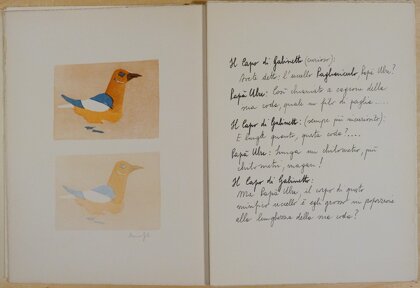 Il Capo di Gabinetto (curioso):
Avete detto: l'uccello Paglianiculo Papà Ubu?
Papà Ubu: Così chiamato a cagione della
sua coda, quale un filo di paglia....
Il Capo di Gabinetto: (sempre più incuriosito):
E lunga quanto, questa coda?....
Papà Ubu: Lunga un chilometro, più
chilometri, magari!
Il Capo di Gabinetto:
Ma Papà Ubu, il corpo di questo
mirifico uccello è egli grosso in proporzione
alla lunghezza della sua coda?